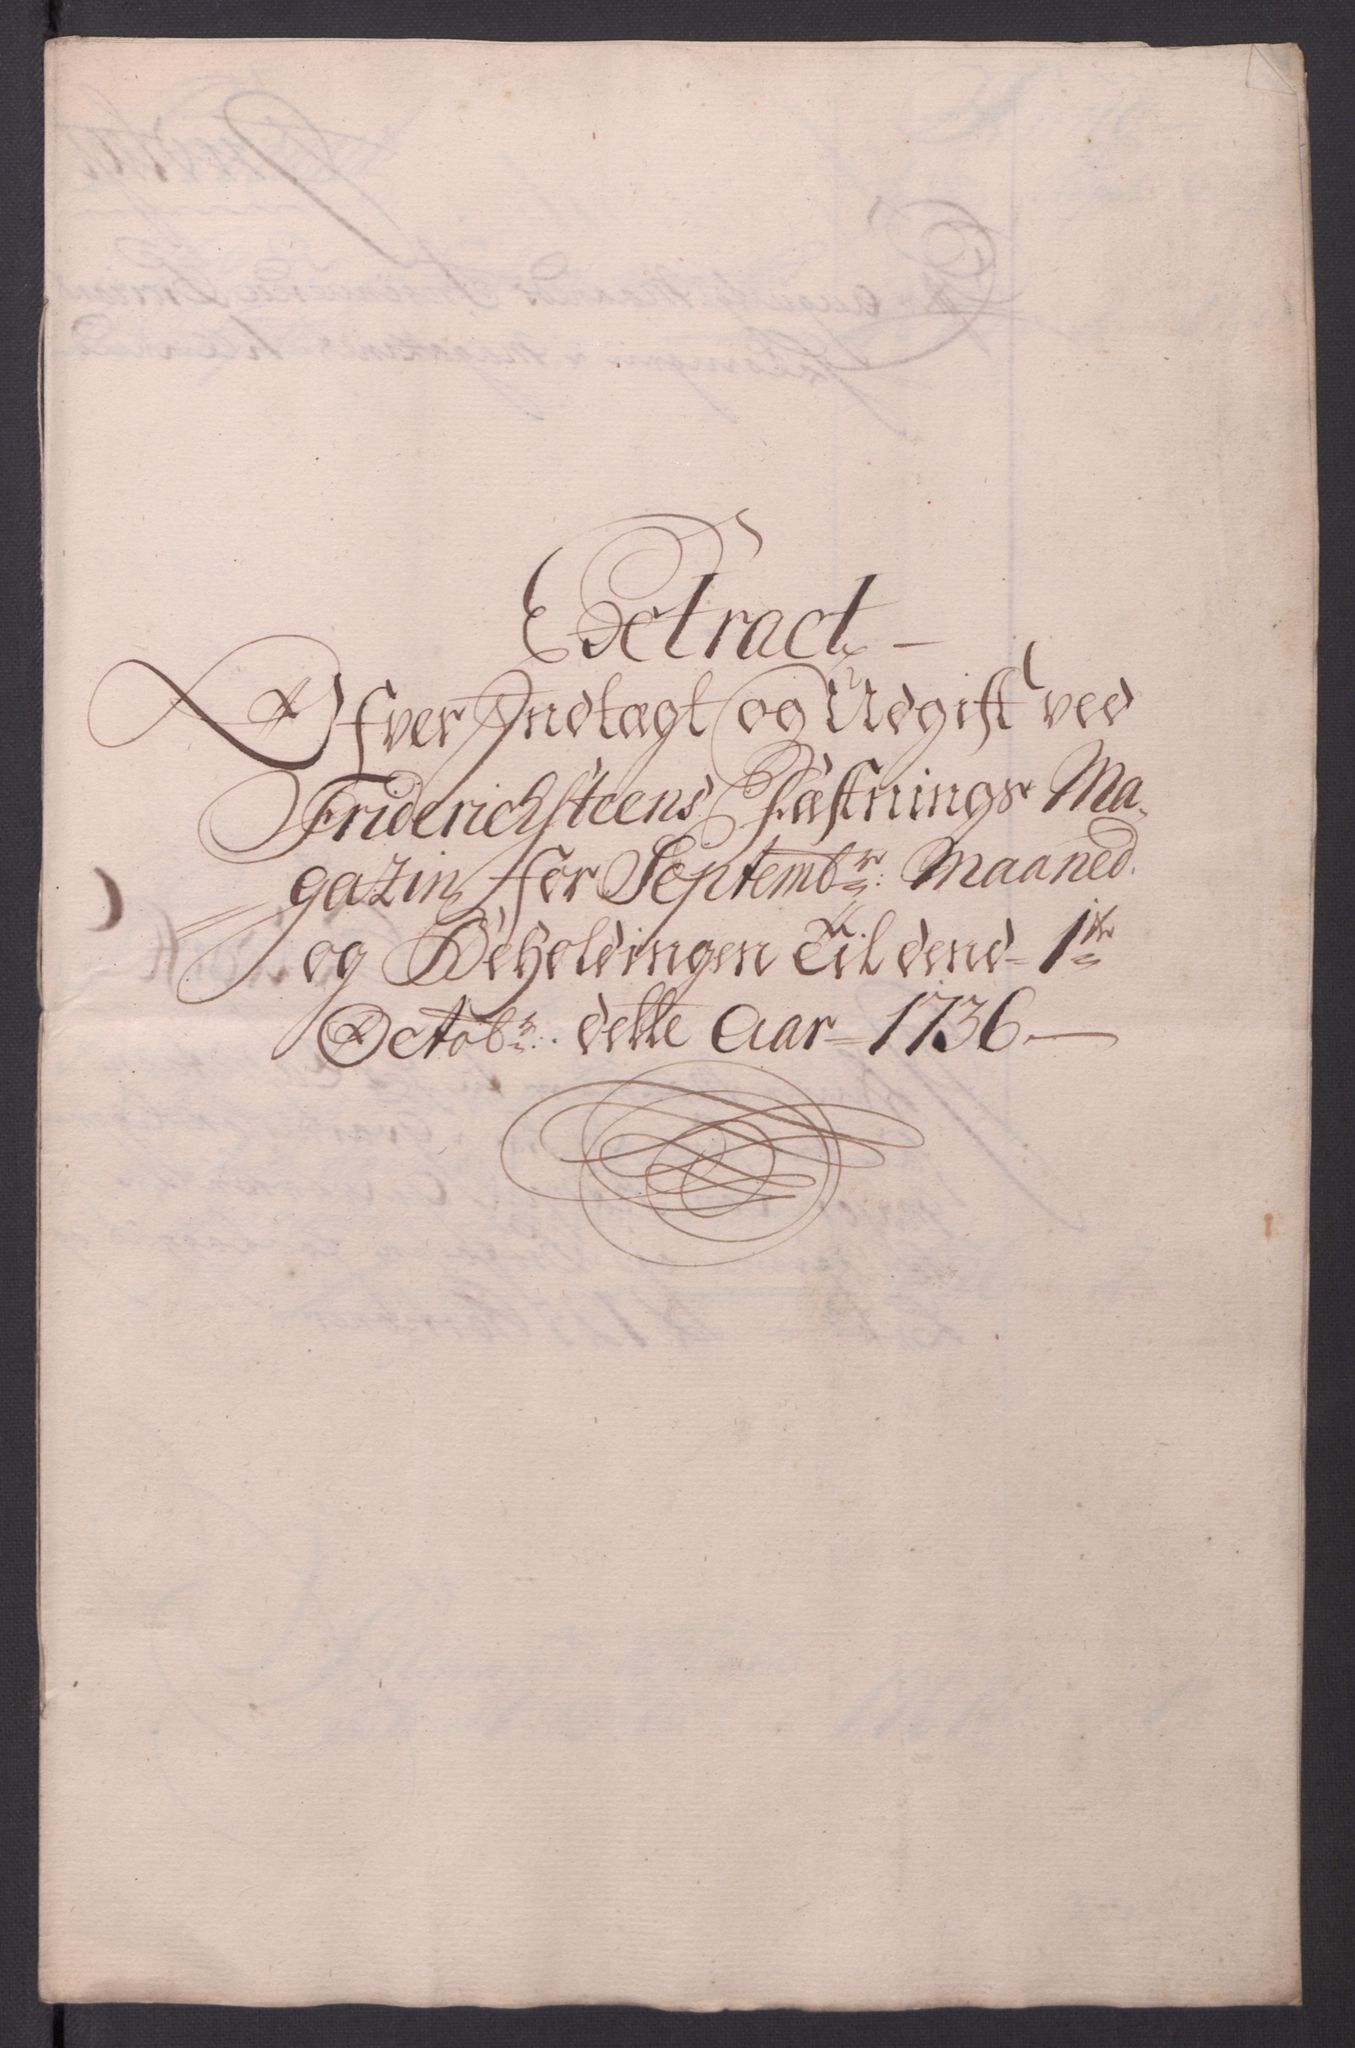 Extract
Ofver Indtægt og Udgift ved
Friderichsteens Fæstnings Ma-
gazin, for Septembr: Maaned.
og Beholdingen Til dend 1te
Octobr: dette Aar 1736